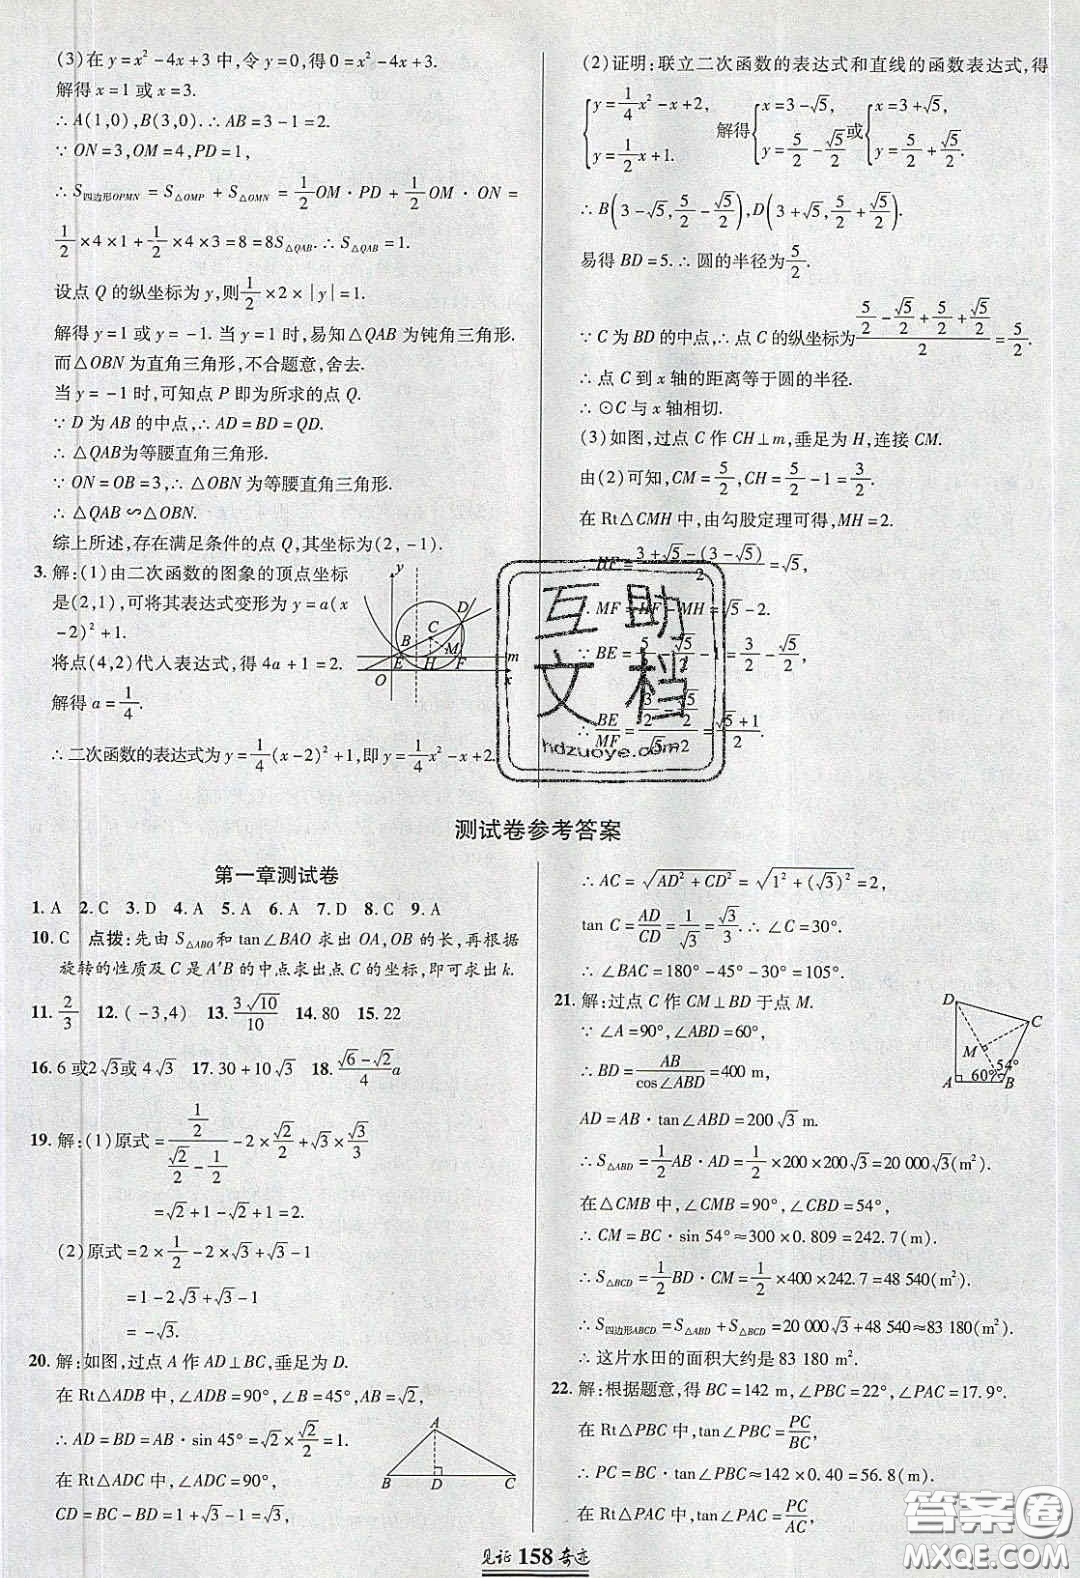 (3)在 y=x²-4x+3 中,令 y=0,得 0=x²-4x+3.
解得 x=1 或 x=3.
∴A(1,0),B(3,0).∴AB=3-1=2.
∵ON=3,OM=4,PD=1,
∴S四边形OPMN=S△OMP+S△OMN=1/2OM·PD+1/2OM·ON=
1/2×4×1+1/2×4×3=8=8S△QAB.∴S△QAB=1.
设点 Q 的纵坐标为 y,则1/2×2×|y|=1.
解得 y=1 或 y=-1.当 y=1 时,易知△QAB 为钝角三角形.
而△OBN 为直角三角形,不合题意,舍去.
当 y=-1 时,可知点 P 即为所求的点 Q.
∵D 为 AB 的中点,∴AD=BD=QD.
∴△QAB为等腰直角三角形.
∵ON=OB=3,∴△OBN 为等腰直角三角形.
∴△QAB∽△OBN.
综上所述,存在满足条件的点 Q,其坐标为(2,-1).
3.解:(1)由二次函数的图象的顶点坐标
是(2,1),可将其表达式变形为 y=a(x
-2)²+1.
将点(4,2)代人表达式,得 4a+1=2.
解得 a=1/4.
∴二次函数的表达式为 y=1/4(x-2)²+1,即 y=1/4x²-x+2.
y
D
B
C
M
E
H
F
m
O
x
(2)证明:联立二次函数的表达式和直线的函数表达式,得
{y=1/4x²-x+2, y=1/2x+1. 解得{x=3-√5, y=5/2-√5/2 或{x=3+√5, y=5/2+√5/2.
∴B(3-√5,5/2-√5/2),D(3+√5,5/2+√5/2).
易得 BD=5.∴圆的半径为5/2.
∵C 为 BD 的中点,∴点 C 的纵坐标为(5/2-√5/2+5/2+√5/2)/2=5/2.
∴点 C 到 x 轴的距离等于圆的半径.
∴⊙C 与 x 轴相切.
(3)如图,过点 C 作 CH⊥m,垂足为 H,连接 CM.
由(2)可知,CM=5/2,CH=5/2-1=3/2.
在 Rt△CMH 中,由勾股定理可得,MH=2.
∴HF=(3+√5-(3-√5))/2=√5,
∴MF=HF-MH=√5-2.
∵BE=5/2-√5/2-1=3/2-√5/2,
∴BE/MF=(3/2-√5/2)/(√5-2)=(√5+1)/2.
互助
文档
hdzuoye.com
测试卷参考答案
第一章测试卷
1.A 2.C 3.D 4.A 5.A 6.A 7.D 8.C 9.A
10.C 点拨:先由 S△ABO和 tan∠BAO 求出 OA,OB 的长,再根据
旋转的性质及 C 是 A′B 的中点求出点 C 的坐标,即可求出 k.
11.2/3 12.(-3,4) 13.3√10/10 14.80 15.22
16.6 或2√3或 4√3 17.10 18.(√6-√2)/4 a
19.解:(1)原式=(1/2)/(√2/2-1/2)-2×√2/2+√3×√3/3
=√2+1-√2+1=2.
(2)原式=2×1/2-2×√3+√3-1
=1-2√3+√3-1
=-√3.
20.解:如图,过点 A 作 AD⊥BC,垂足为 D.
在 Rt△ADB 中,∠ADB=90°,∠B=45°,AB=√2,
∴AD=BD=AB·sin 45°=√2×√2/2=1.
在 Rt△ADC 中,∠ADC=90°,
CD=BC-BD=1+√3-1=√3,
A
B
D
C
∴AC=√(AD²+CD²)=√(1²+(√3)²)=2,
tan C=AD/CD=1/√3=√3/3.∴∠C=30°.
∴∠BAC=180°-45°-30°=105°.
21.解:过点 C 作 CM⊥BD 于点 M.
∵∠A=90°,∠ABD=60°,
∴BD=AB/cos∠ABD=400 m,
AD=AB·tan∠ABD=200√3 m.
∴S△ABD=1/2AB·AD=1/2×200×200√3=20 000√3(m²).
在△CMB 中,∠CMB=90°,∠CBD=54°,
∴CM=BC·sin 54°≈300×0.809=242.7(m).
∴S△BCD=1/2BD·CM≈1/2×400×242.7=48 540(m²).
∴S四边形ABCD=S△ABD+S△BCD=20 000√3+48 540≈83 180(m²).
∴这片水田的面积大约是 83 180 m².
D
C
M
54°
60°
A
B
22.解:根据题意,得 BC=142 m,∠PBC=22°,∠PAC=17.9°.
在 Rt△PBC 中,tan∠PBC=PC/BC,
∴PC=BC·tan∠PBC≈142×0.40=56.8(m).
在 Rt△PAC 中,tan∠PAC=PC/AC,
答案圈
MXQE.COM
见证158奇迹